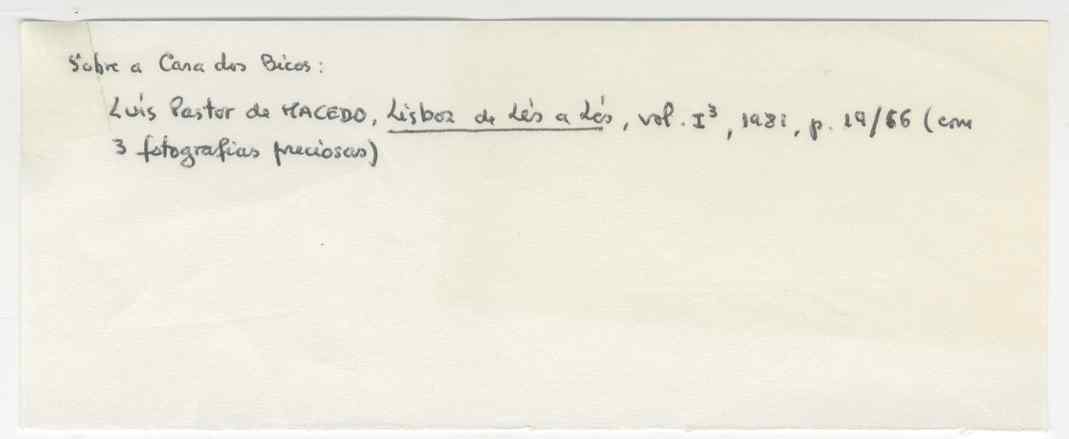 Sobre a Casa dos Bicos:
Luís Pastor de MACEDO, Lisboa de Lés a Lés, vol. I³, 1981, p. 19/66 (com
3 fotografias preciosas)